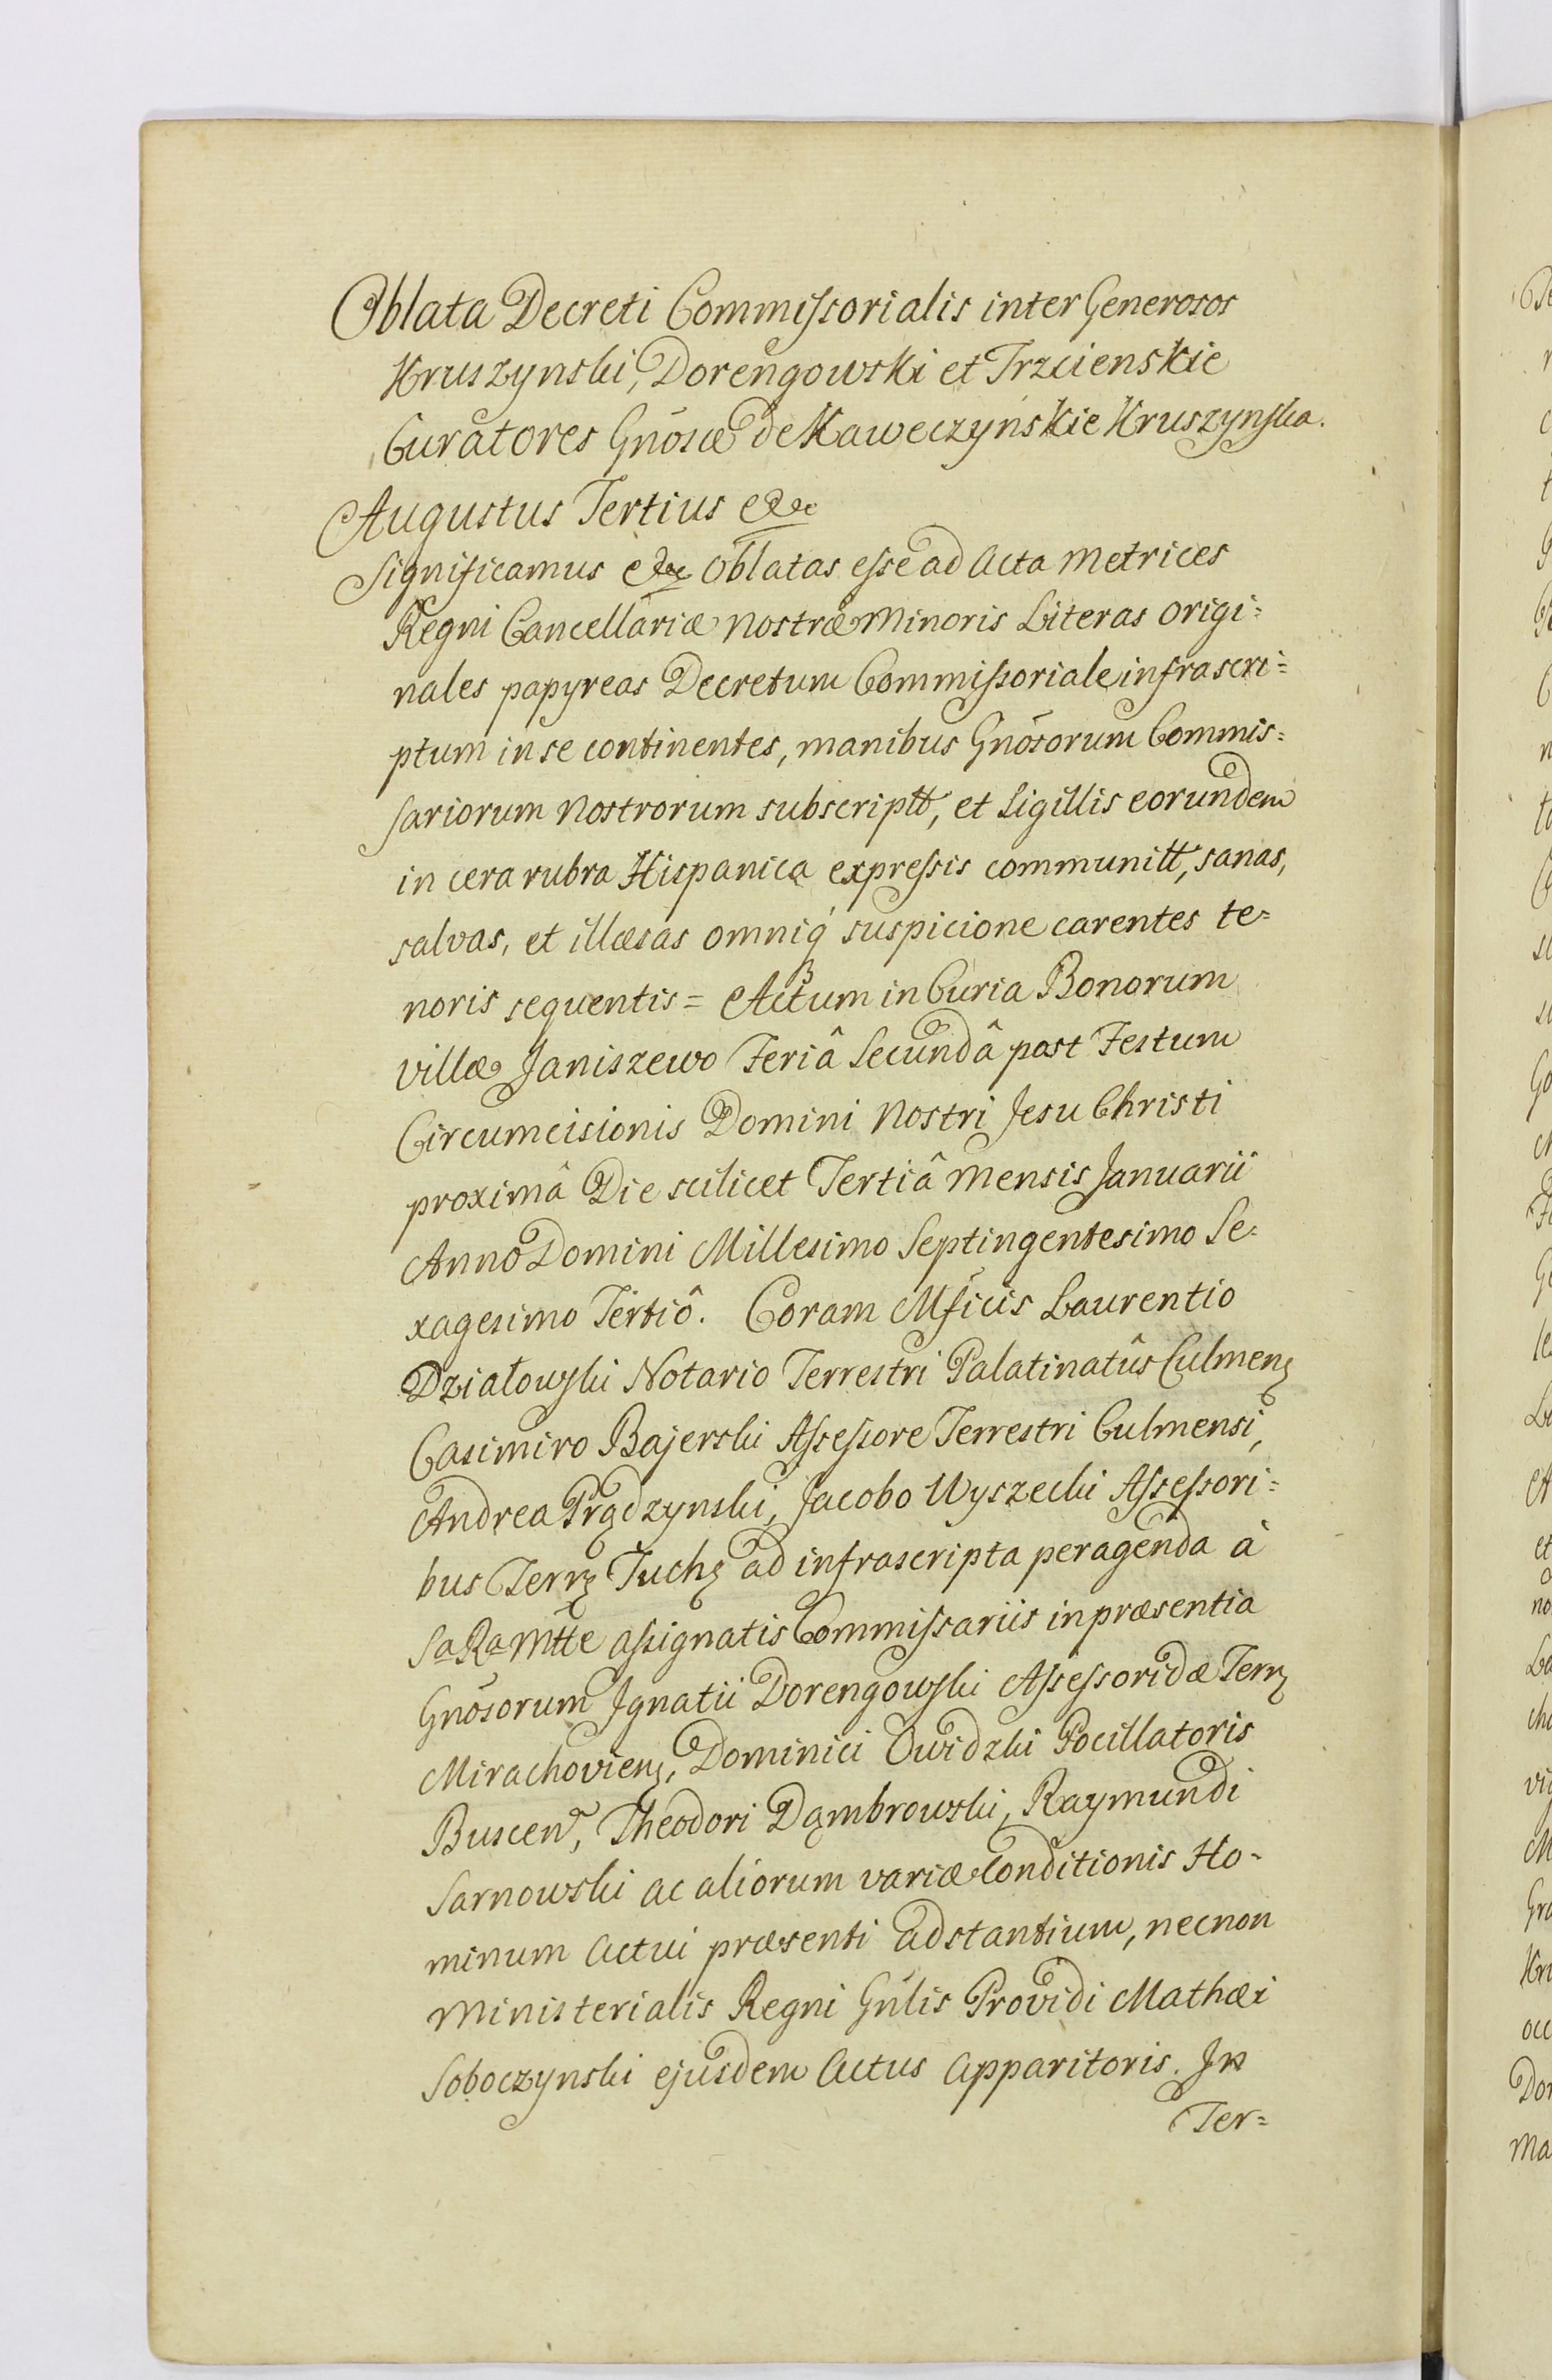 Oblata Decreti Commissorialis inter Generosos
Kruszynski, Dorengowski et Trzcienskie
Curatores Gnõsæ de Kaweczyńskie Kruszynska.
Augustus Tertius &c
Significamus &c Oblatas esse ad Acta Metrices
Regni Cancellariæ Nostræ Minoris Literas origi=
nales papyreas Decretum Commissoriale infrascri=
ptum in se continentes, manibus Gnõsorum Commis=
sariorum Nostrorum subscriptt, et Sigillis eorundem
in cera rubra Hispanica expressis communitt, sanas,
salvas, et illæsas omniq́ suspicione carentes te=
noris sequentis = Actum in Curia Bonorum
villæ Janiszewo Feriâ Secundâ post Festum
Circumcisionis Domini Nostri Jesu Christi
proximâ Die scilicet Tertiâ Mensis Januarii
Anno Domini Millesimo Septingentesimo Se=
xagesimo Tertiô. Coram Mficis Laurentio
Działowski Notario Terrestri Palatinatûs Culmenȝ
Casimiro Bajerski Assessore Terrestri Culmensi,
Andrea Prądzynski, Jacobo Wyszecki Assessori=
bus Terrȝ Tuchȝ ad infrascripta peragenda à
Sa Ra Mtte assignatis Commissariis in præsentia
Gnõsorum Ignatii Dorengowski Assessoridæ Terrȝ
Mirachovienȝ, Dominici Owidzki Pocillatoris
Buscen, Theodori Dąmbrowski, Raymundi
Sarnowski ac aliorum variæ Conditionis Ho=
minum Actui præsenti adstantium, necnon
Ministerialis Regni Gńlis Providi Mathæi
Soboczynski ejusdem Actus Apparitoris. In
Ter=